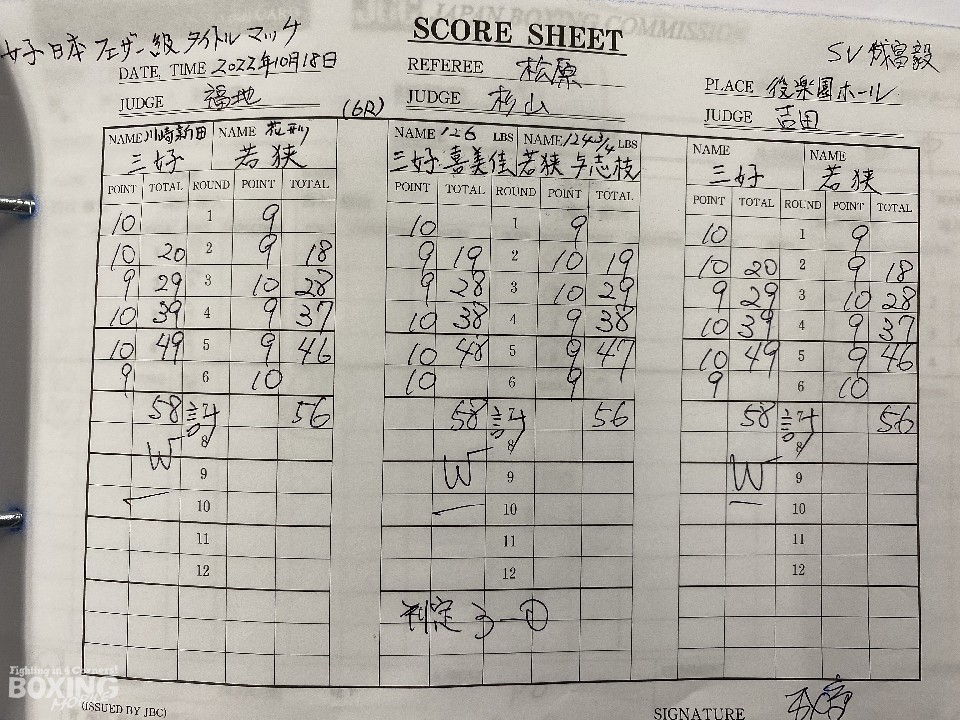 JAPAN BOXING COMMISSION
SCORE SHEET
女子日本フェザー級タイトルマッチ
DATE, TIME 2022年10月18日
REFEREE 松原
SV 成富毅
JUDGE 福地
(6R)
JUDGE 杉山
PLACE 後楽園ホール
JUDGE 吉田
NAME 川崎新田 NAME 花形
三好 若狭
POINT TOTAL ROUND POINT TOTAL
10 1 9
10 20 2 9 18
9 29 3 10 28
10 39 4 9 37
10 49 5 9 46
9 6 10
58 計 56
8
W 9
10
11
12
NAME 126 LBS NAME 124 3/4 LBS
三好 喜美佳 若狭 与志枝
POINT TOTAL ROUND POINT TOTAL
10 1 9
9 19 2 10 19
9 28 3 10 29
10 38 4 9 38
10 48 5 9 47
10 6 9
58 計 56
8
W 9
10
11
12
判定 3-0
NAME NAME
三好 若狭
POINT TOTAL ROUND POINT TOTAL
10 1 9
10 20 2 9 18
9 29 3 10 28
10 39 4 9 37
10 49 5 9 46
9 6 10
58 計 56
8
W 9
10
11
12
Fighting in 4 Corners!
BOXING
MOBILE
(ISSUED BY JBC)
SIGNATURE